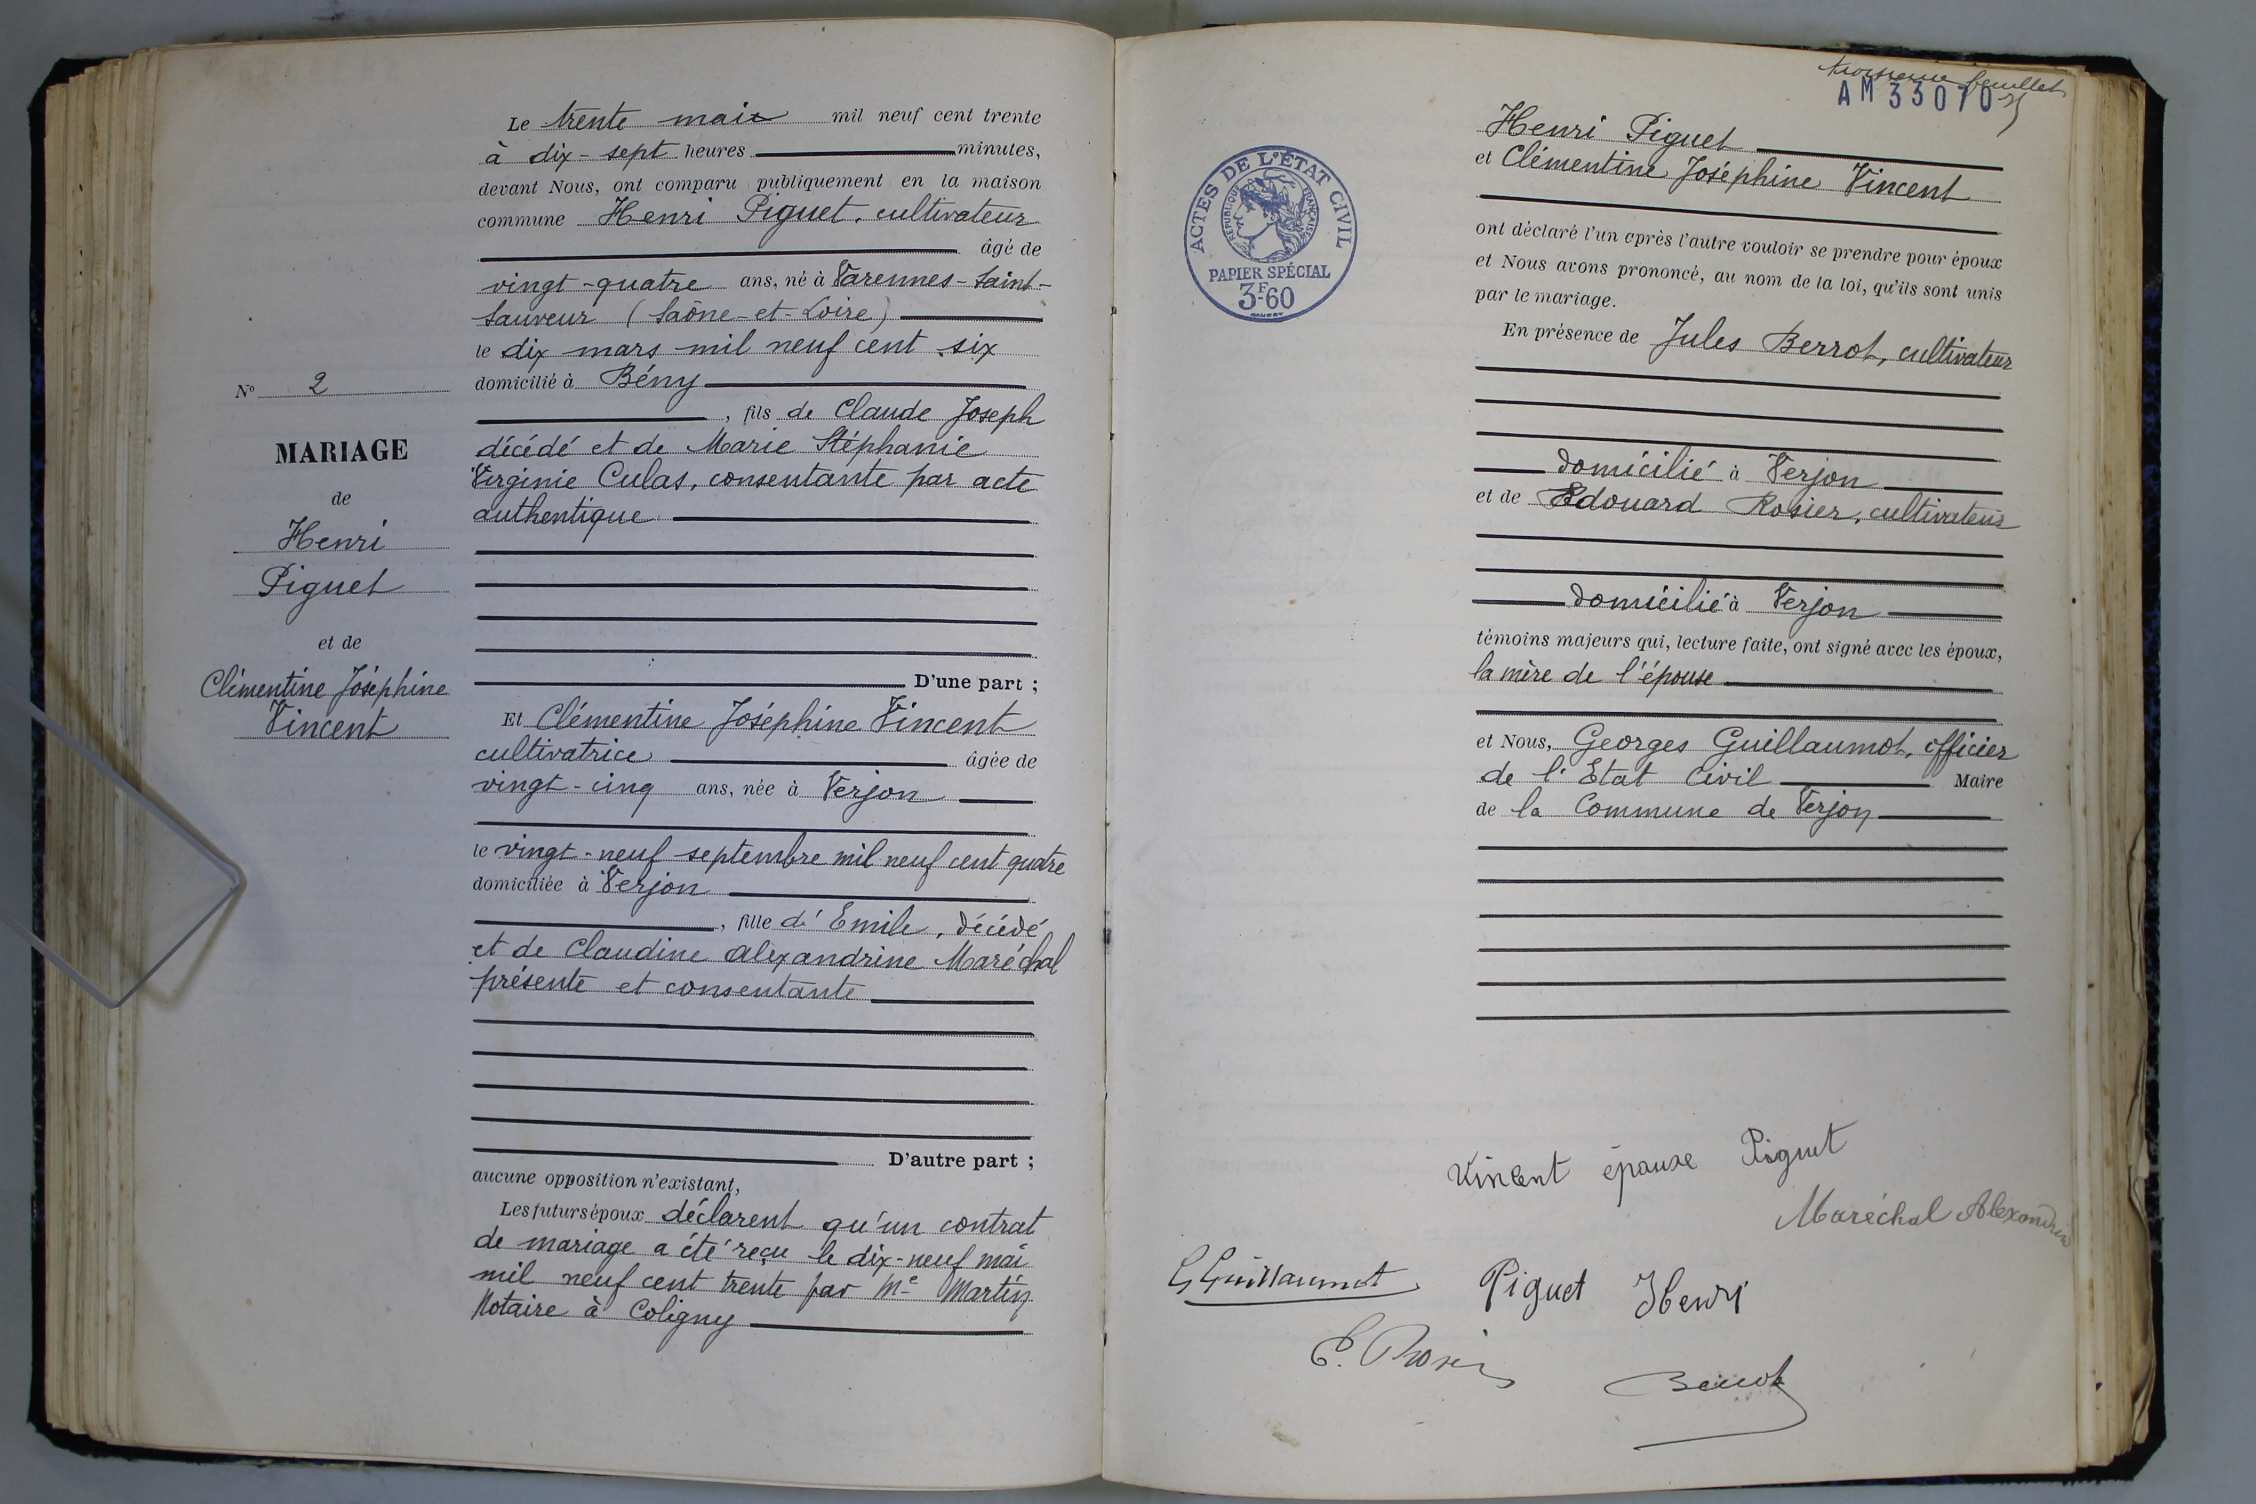 Le trente mai mil neuf cent trente
à dix-sept heures minutes,
devant Nous, ont comparu publiquement en la maison
commune Henri Piguet, cultivateur
âgé de
vingt-quatre ans, né à Varennes-Saint-
Sauveur (Saône-et-Loire)
le dix mars mil neuf cent six
domicilié à Bény
, fils de Claude Joseph
décédé et de Marie Stéphanie
Virginie Culas, consentante par acte
authentique
D'une part ;
N° 2
MARIAGE
de
Henri
Piguet
et de
Clémentine Joséphine
Vincent
Et Clémentine Joséphine Vincent
cultivatrice âgée de
vingt-cinq ans, née à Verjon
le vingt-neuf septembre mil neuf cent quatre
domiciliée à Verjon
, fille d'Emile, décédé
et de Claudine Alexandrine Maréchal
présente et consentante
D'autre part ;
aucune opposition n'existant,
Les futurs époux déclarent qu'un contrat
de mariage a été reçu le dix-neuf mai
mil neuf cent trente par Me Martin
Notaire à Coligny
troisième feuillet
AM 33070
ACTES DE L'ÉTAT CIVIL
RÉPUBLIQUE FRANÇAISE
PAPIER SPÉCIAL
3F60
Henri Piguet
et Clémentine Joséphine Vincent
ont déclaré l'un après l'autre vouloir se prendre pour époux
et Nous avons prononcé, au nom de la loi, qu'ils sont unis
par le mariage.
En présence de Jules Berrot, cultivateur
domicilié à Verjon
et de Edouard Rosier, cultivateur
domicilié à Verjon
témoins majeurs qui, lecture faite, ont signé avec les époux,
la mère de l'épouse
et Nous, Georges Guillaumot, officier
de l'Etat Civil Maire
de la Commune de Verjon
Vincent épouse Piguet
Maréchal Alexandrine
G Guillaumot
Piguet Henri
E. Rosier
Berrot